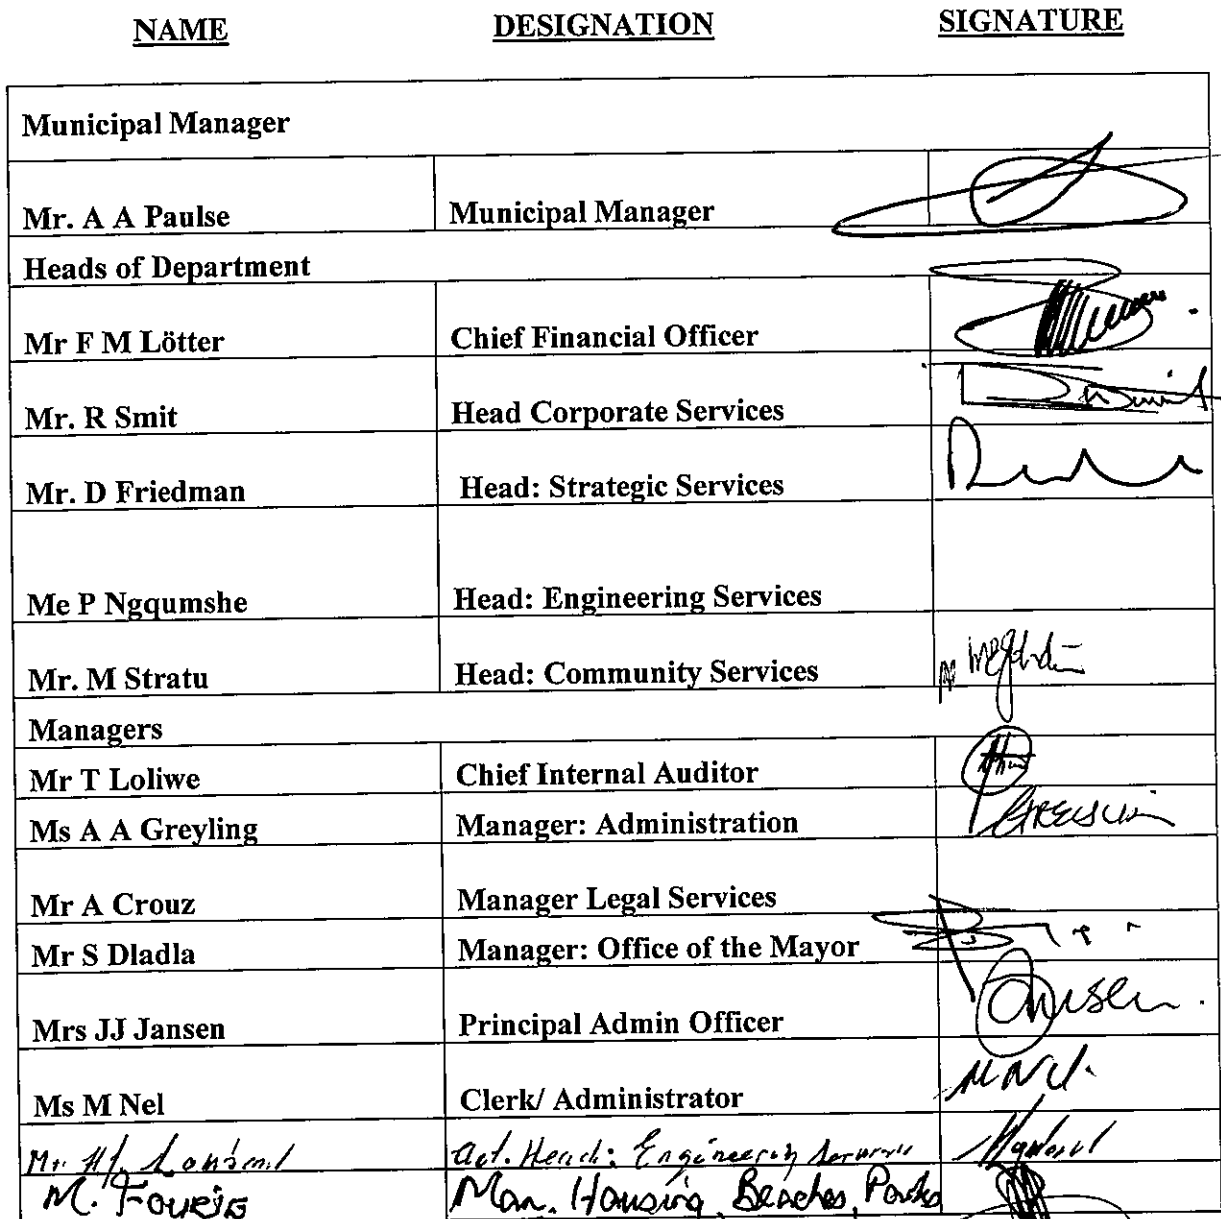 NAME DESIGNATION SIGNATURE
Municipal Manager
Mr. A A Paulse Municipal Manager
Heads of Department
Mr F M Lötter Chief Financial Officer
Mr. R Smit Head Corporate Services
Mr. D Friedman Head: Strategic Services
Me P Ngqumshe Head: Engineering Services
Mr. M Stratu Head: Community Services
Managers
Mr T Loliwe Chief Internal Auditor
Ms A A Greyling Manager: Administration
Mr A Crouz Manager Legal Services
Mr S Dladla Manager: Office of the Mayor
Mrs JJ Jansen Principal Admin Officer
Ms M Nel Clerk/ Administrator M Nel
Mr. Act. Head: Engineering
M. Man. Housing, Beaches, Parks